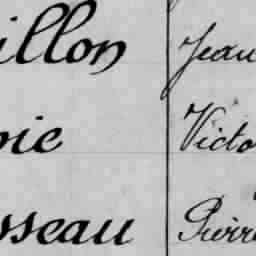 illon Jean
oie Victo
sseau Pierre